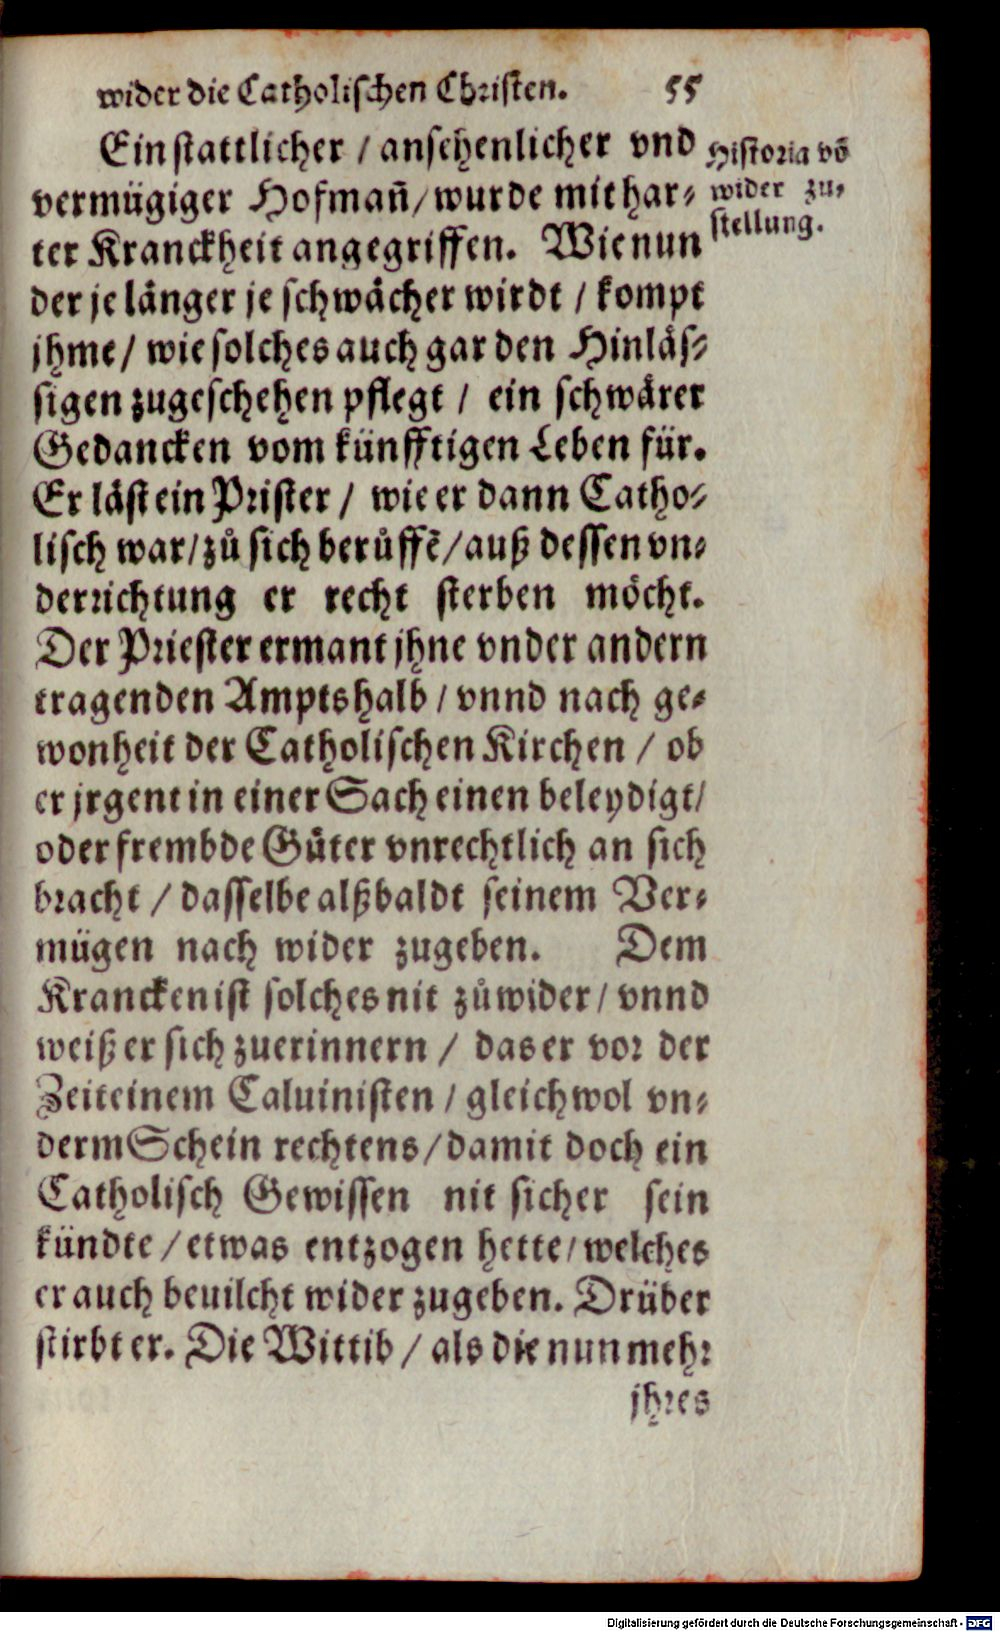 wider die Catholischen Christen. 55
Ein stattlicher / ansehenlicher vnd
vermügiger Hofmañ / wurde mit har⸗
ter Kranckheit angegriffen. Wie nun
der je länger je schwächer wirdt / kompt
jhme / wie solches auch gar den Hinläs⸗
sigen zugeschehen pflegt / ein schwärer
Gedancken vom künfftigen Leben für.
Er läst ein Prister / wie er dann Catho⸗
lisch war / zů sich berůffẽ / auß dessen vn⸗
derrichtung er recht sterben möcht.
Der Priester ermant jhne vnder andern
tragenden Ampts halb / vnnd nach ge⸗
wonheit der Catholischen Kirchen / ob
er jrgent in einer Sach einen beleydigt /
oder frembde Güter vnrechtlich an sich
bracht / dasselbe alßbaldt seinem Ver⸗
mügen nach wider zugeben. Dem
Krancken ist solches nit zů wider / vnnd
weiß er sich zuerinnern / das er vor der
Zeit einem Caluinisten / gleichwol vn⸗
derm Schein rechtens / damit doch ein
Catholisch Gewissen nit sicher sein
kündte / etwas entzogen hette / welches
er auch beuilcht wider zugeben. Drüber
stirbt er. Die Wittib / als die nun mehr
jhres
Historia võ
wider zu⸗
stellung.
Digitalisierung gefördert durch die Deutsche Forschungsgemeinschaft - DFG